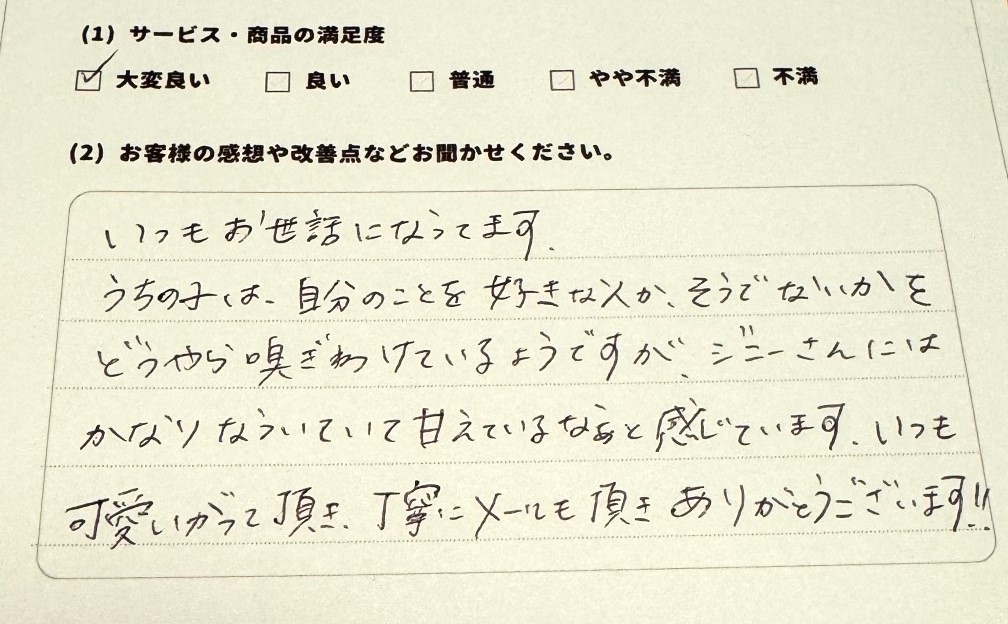 (1) サービス・商品の満足度
☑ 大変良い □ 良い □ 普通 □ やや不満 □ 不満
(2) お客様の感想や改善点などお聞かせください。
いつもお世話になってます.
うちの子は、自分のことを好きな人か、そうでないかを
どうやら嗅ぎわけているようですが、ジニーさんには
かなりなついていて甘えているなぁと感じています。いつも
可愛いがって頂き、丁寧にメールも頂きありがとうございます!!